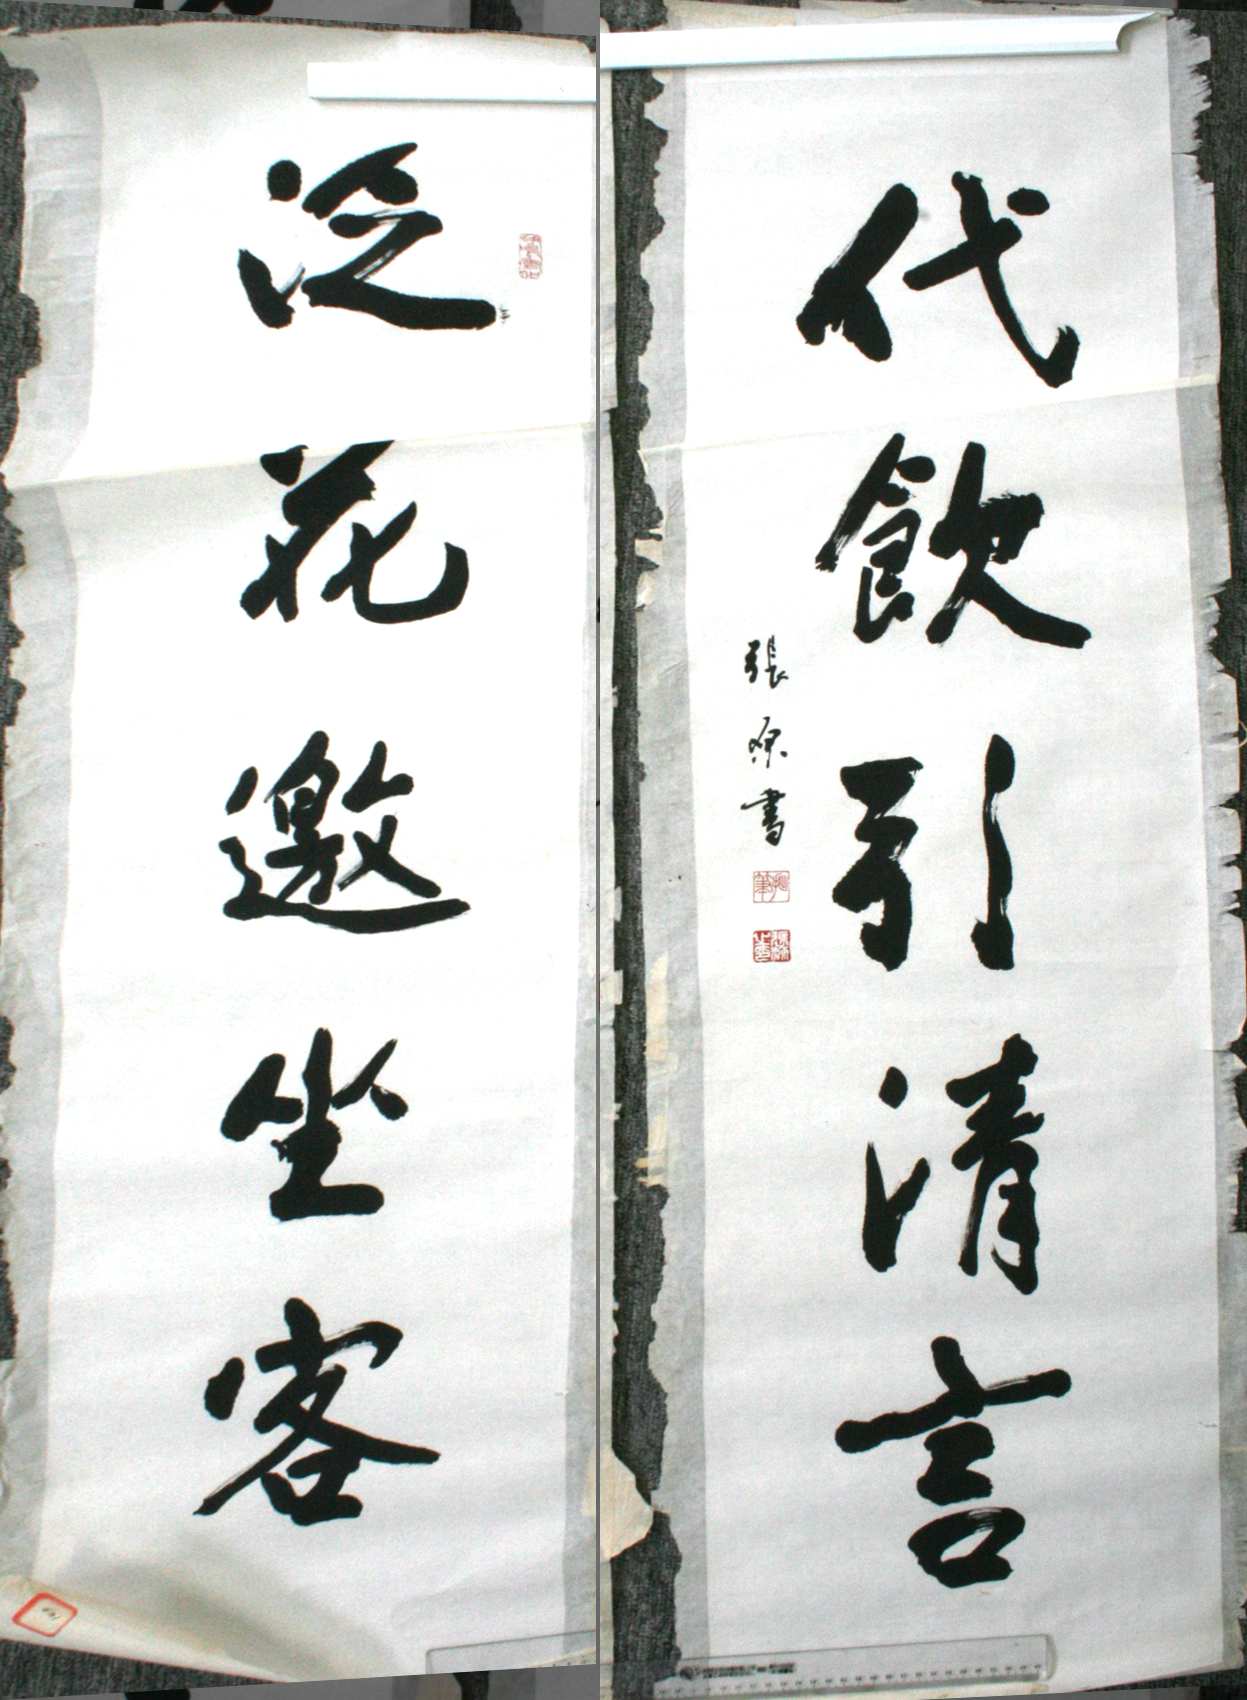 泛花邀坐客
代飲引清言
張源書